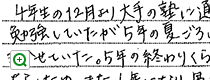 4年生の12月より大手の塾に通
勉強していたが5年の夏ごろ
せていた。5年の終わりくら